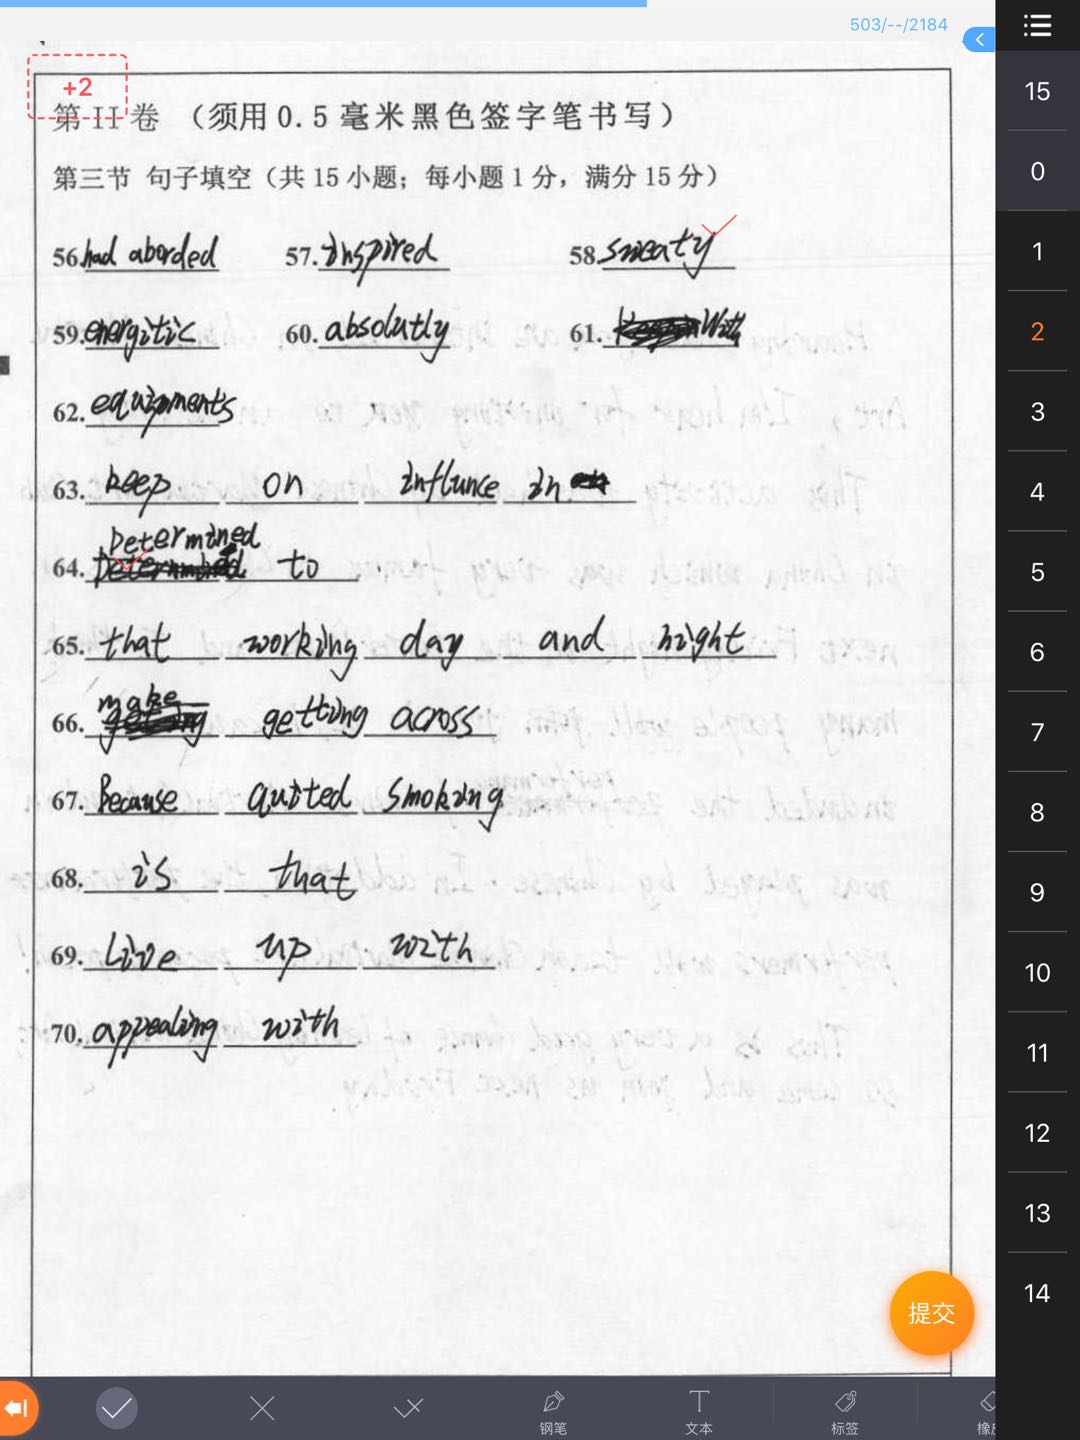 503/--/2184
+2
第 II 卷 （须用 0.5 毫米黑色签字笔书写）
第三节 句子填空（共 15 小题；每小题 1 分，满分 15 分）
56. had aborded 57. inspired 58. sweaty
59. energitic 60. absolutly 61. With
62. equipments
63. keep on influnce in
Determined
64. to
65. that working day and night
make
66. getting across
67. Because quited smoking
68. is that
69. Live up with
70. appealing with
15
0
1
2
3
4
5
6
7
8
9
10
11
12
13
14
提交
钢笔 文本 标签